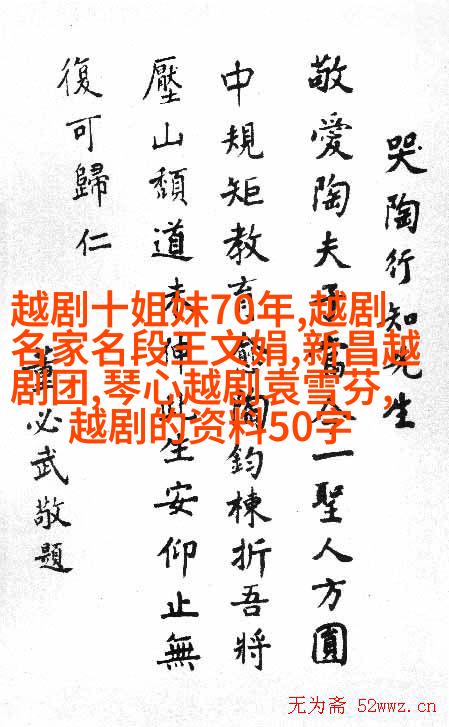 哭陶行知先生
敬愛陶夫子當今一聖人方圓
中規矩教育愈陶鈞棟折吾將
壓山頹道未伸此生安仰止無
復可歸仁
董必武敬題
越剧十姐妹70年,越剧
名家名段王文娟,新昌越
剧团,琴心越剧袁雪芬,
越剧的资料50字
无为斋 52wwz.cn